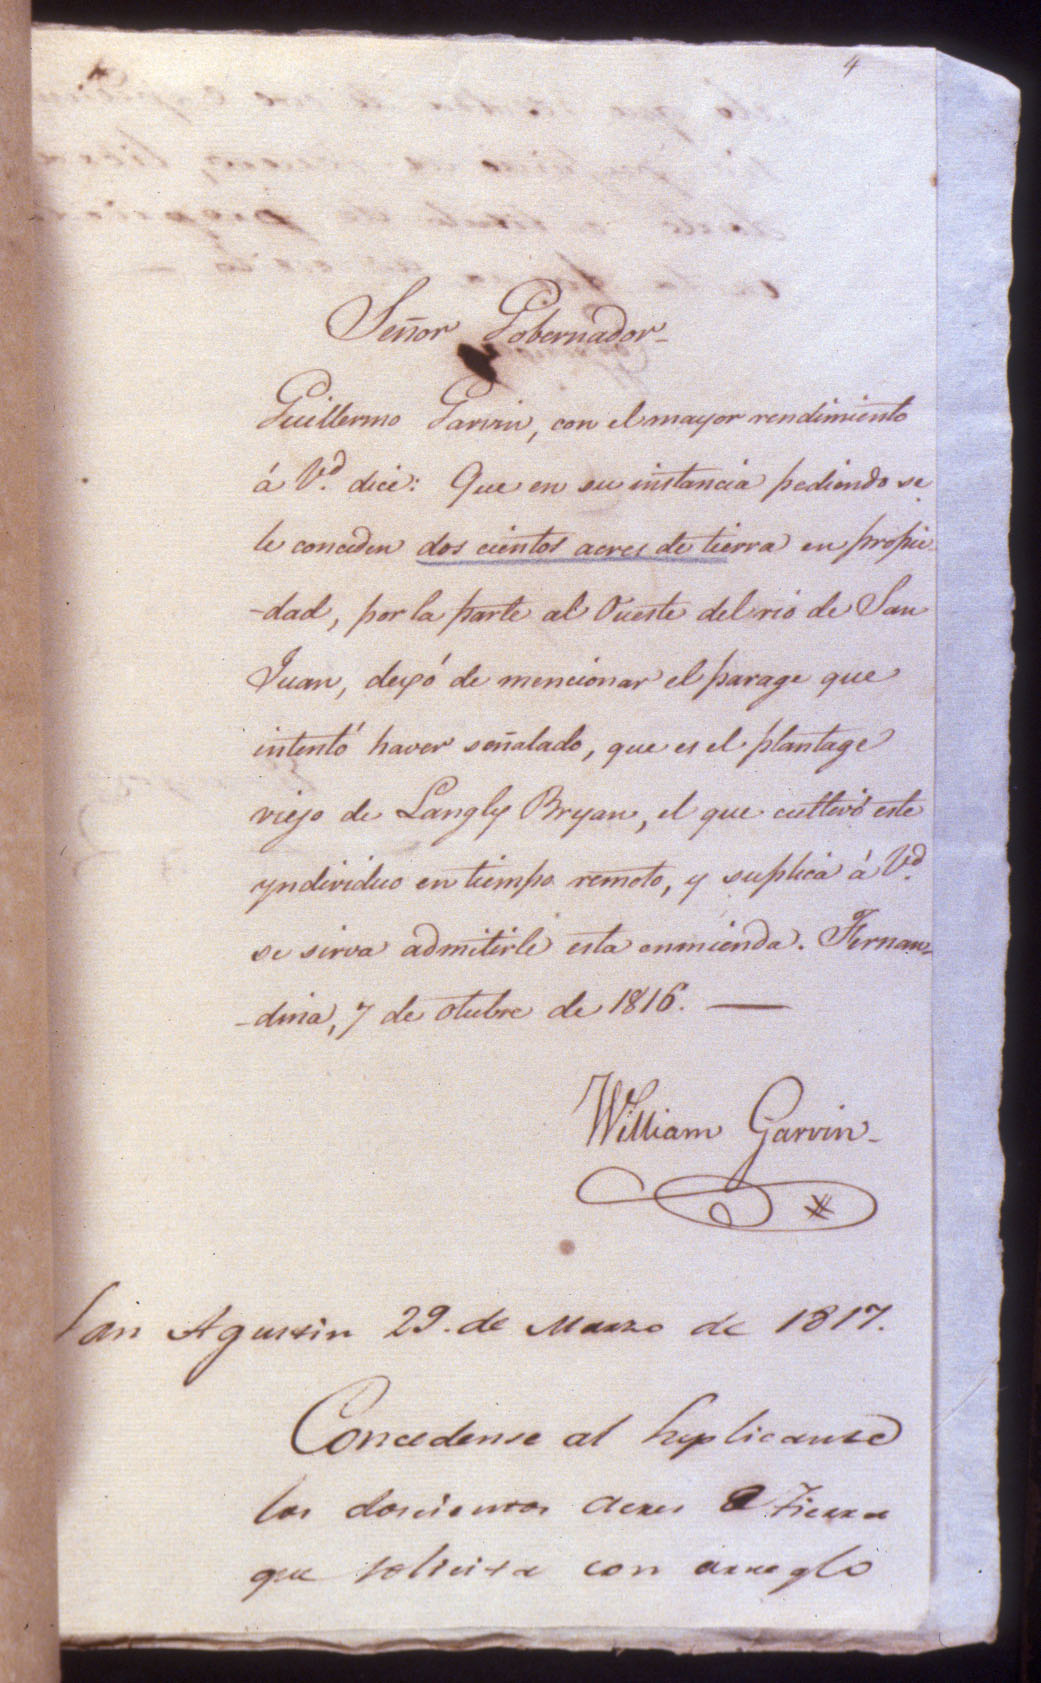 4
Señor Gobernador
Guillermo Garvin, con el mayor rendimiento
á Vd. dice: Que en su instancia pediendo se
le conceden dos cientos acres de tierra en propie-
-dad, por la parte al Oueste del rio de San
Juan, dexó de mencionar el parage que
intentó haver señalado, que es el plantage
viejo de Langly Bryan, el que cultivó este
yndividuo en tiempo remoto, y suplica á Vd.
se sirva admitirle esta enmienda. Fernan-
-dina, 7 de otubre de 1816.
William Garvin
San Agustin 29. de Marzo de 1817.
Concedense al suplicante
los doscientos acres de tierra
que solicita con arreglo